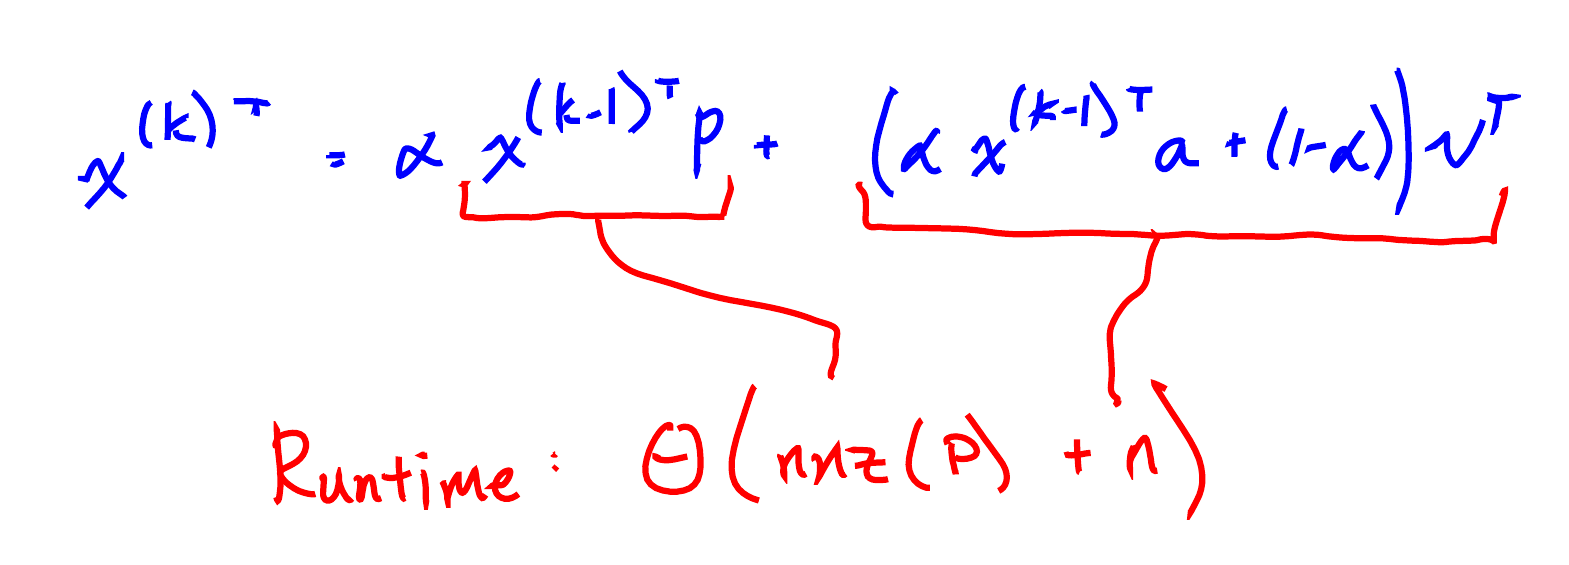 x^{(k)^T} = α x^{(k-1)^T} P + (α x^{(k-1)^T} a + (1-α)) v^T
Runtime: Θ(nnz(P) + n)